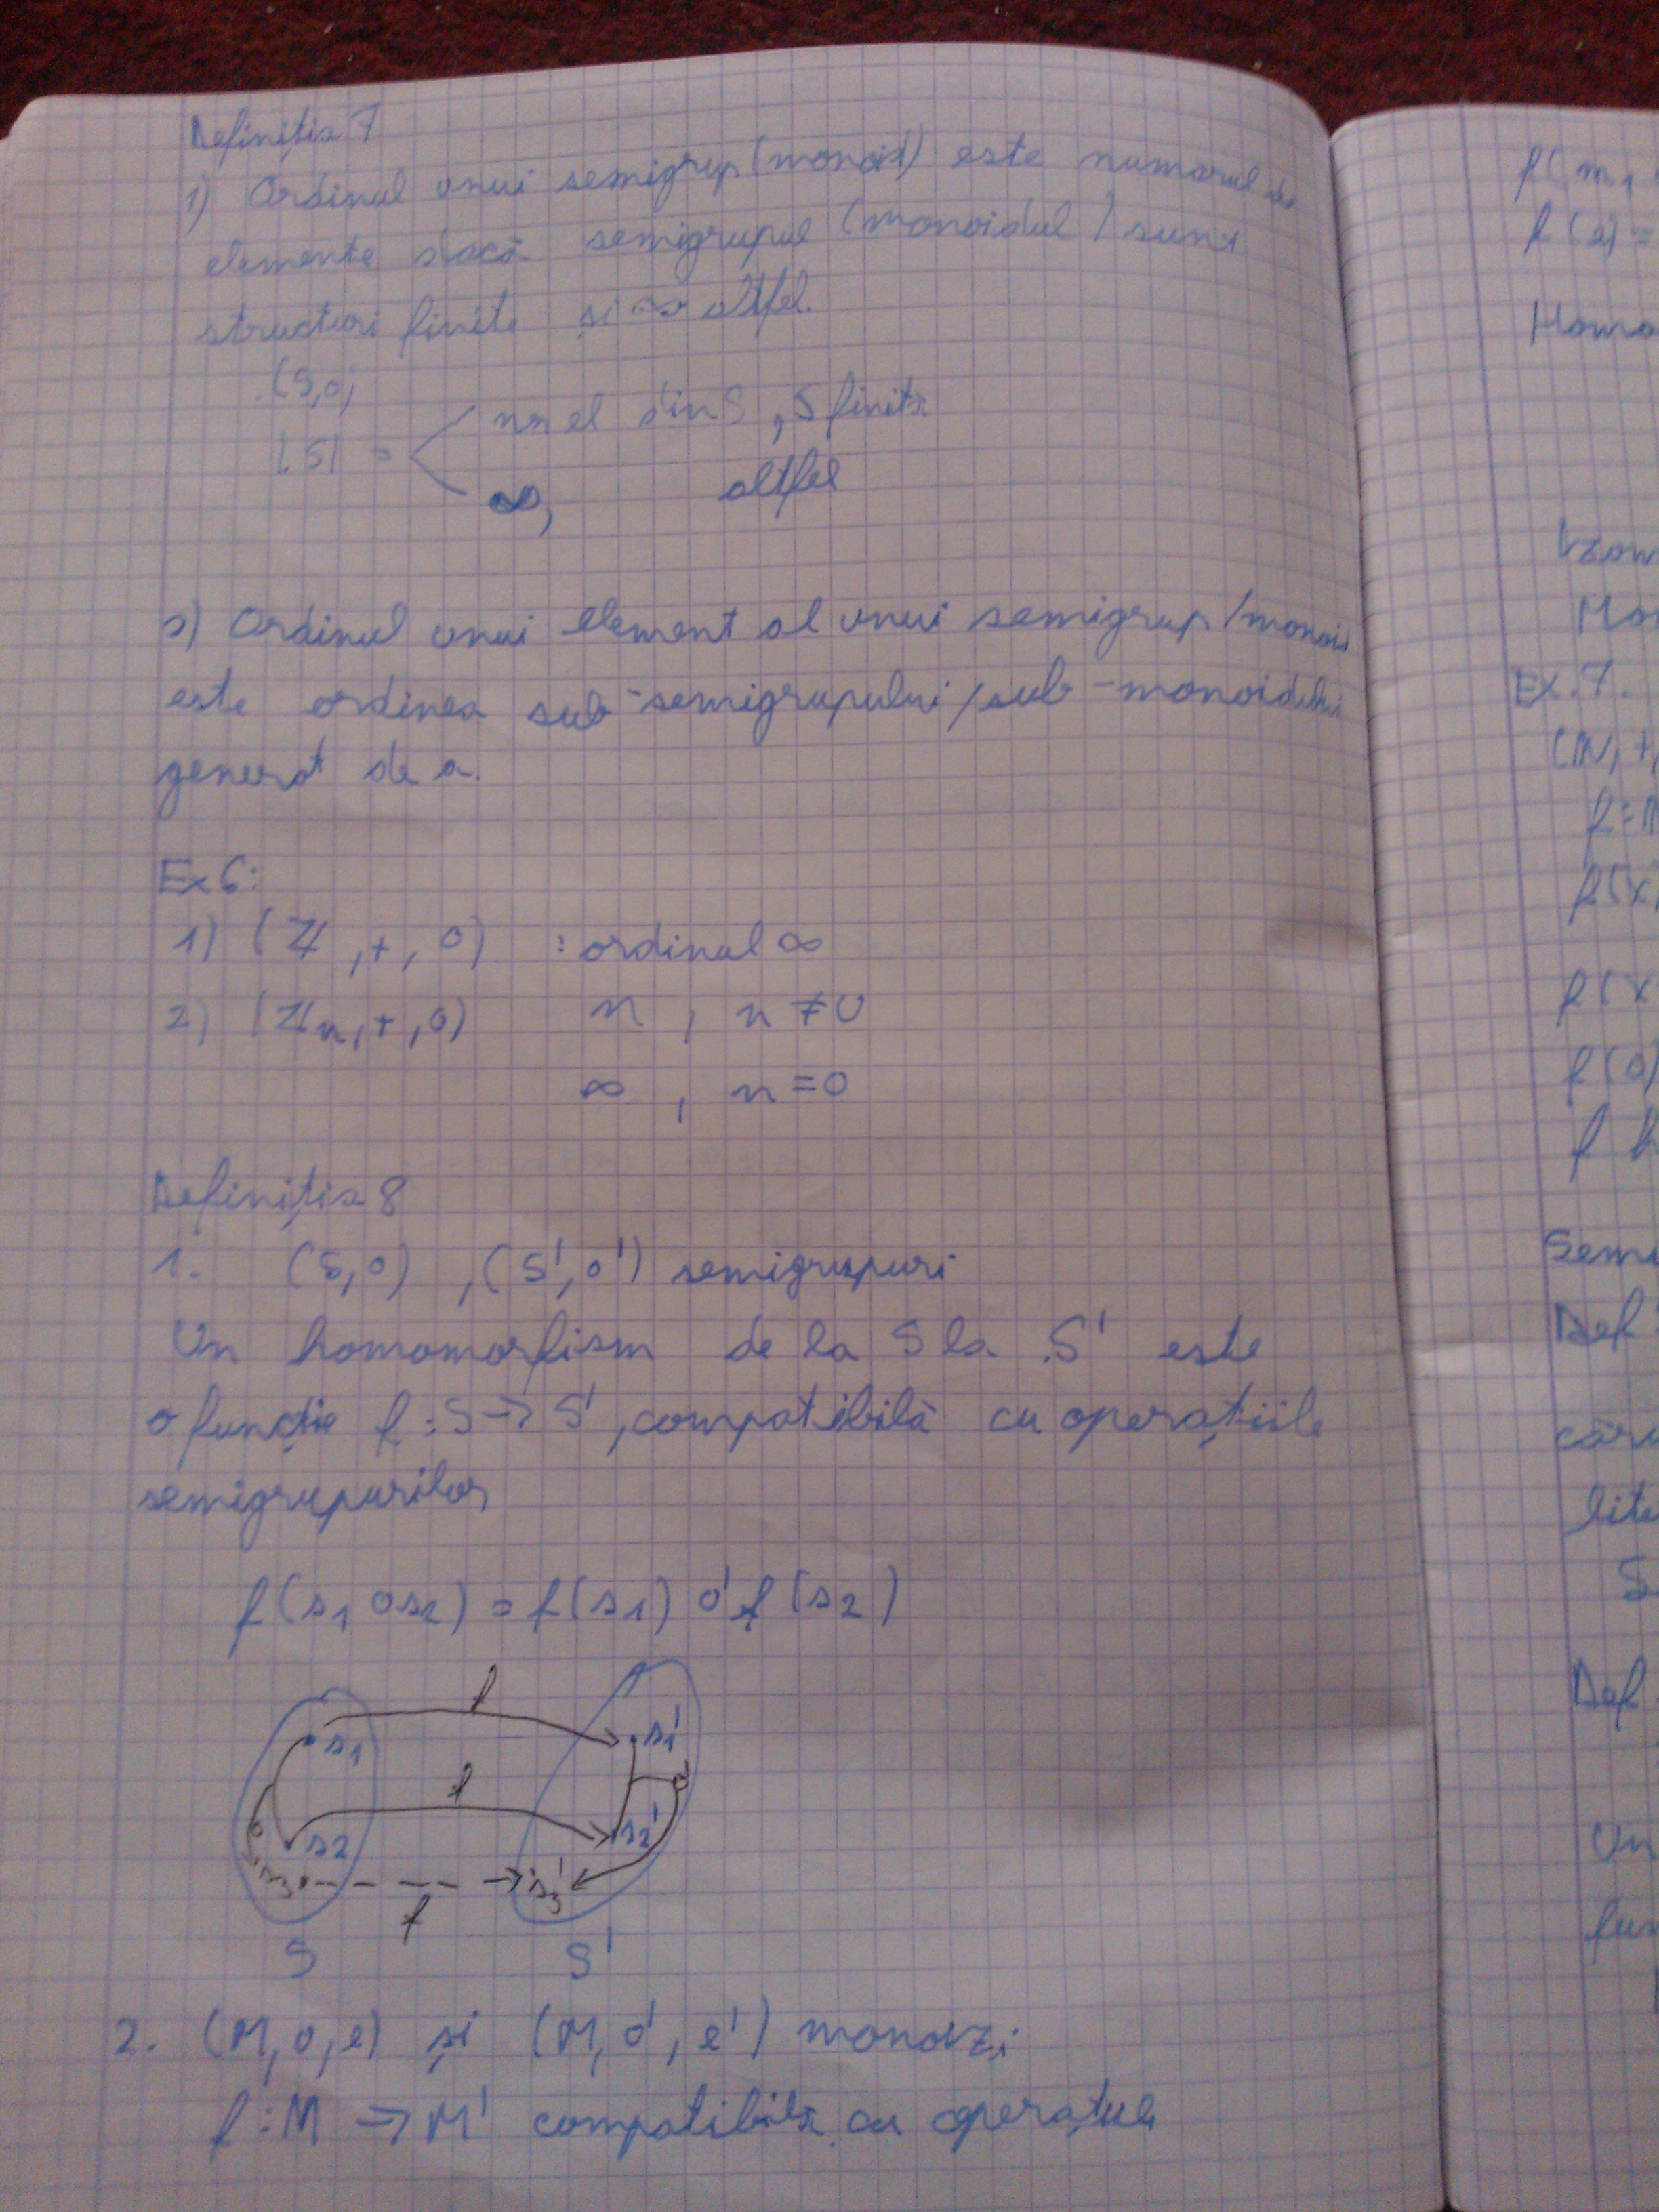 Definiția 7
1) Ordinul unui semigrup (monoid) este numarul de
elemente dacă semigrupul (monoidul) sunt
structuri finite și ∞ altfel.
(S,o)
|S| = nr el din S, S finită
∞, altfel
2) Ordinul unui element al unui semigrup/monoid
este ordinea sub-semigrupului/sub-monoidului
generat de a.
Ex 6:
1) (ℤ,+,0) : ordinul ∞
2) (ℤn,+,0) n, n≠0
∞, n=0
Definiția 8
1. (S,o), (S',o') semigrupuri
Un homomorfism de la S la S' este
o funcție f:S→S', compatibilă cu operațiile
semigrupurilor
f(s1 o s2) = f(s1) o' f(s2)
f
s1 s1'
f o'
o s2 s2'
s3 s3'
f
S S'
2. (M,o,e) și (M,o',e') monoizi
f:M→M' compatibilă cu operațiile
f(m1
f(e) =
Ex.7.
(ℕ,+,
f(x
f(0)
Def
Def
Un